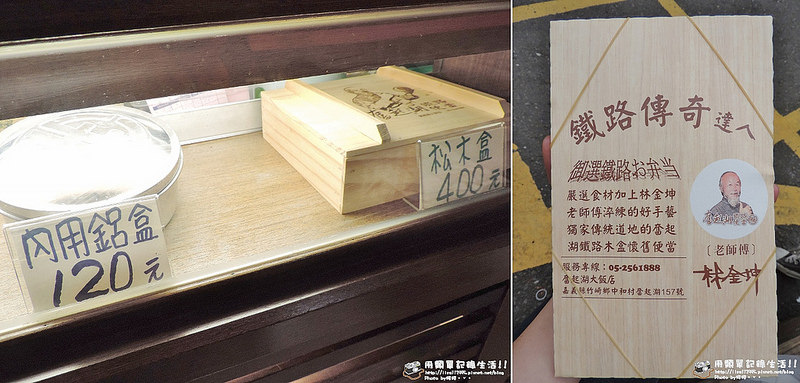 內用鋁盒
120元
松木盒
400元
用願單記機生活!!
鐵路傳奇達人
御選鐵路お弁当
嚴選食材加上林金坤
老師傅淬練的好手藝
獨家傳統道地的奮起
湖鐵路木盒懷舊便當
服務專線:05-2561888
奮起湖大飯店
嘉義縣竹崎鄉中和村奮起湖157號
〔老師傅〕
林金坤